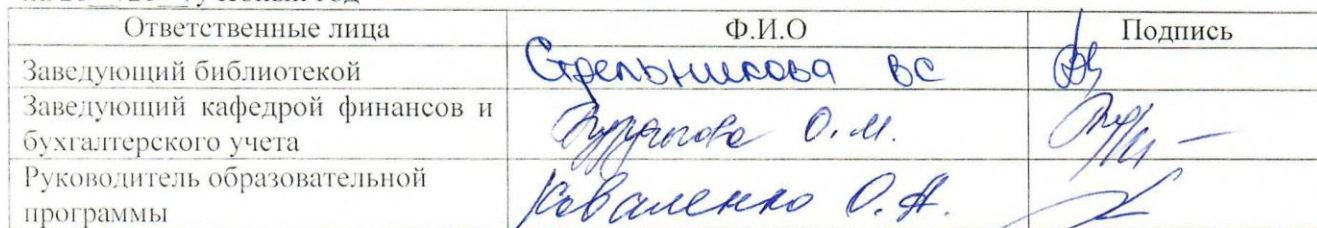 Ответственные лица Ф.И.О Подпись
Заведующий библиотекой Стрельникова ВС
Заведующий кафедрой финансов и
бухгалтерского учета О.М.
Руководитель образовательной
программы Коваленко О.А.